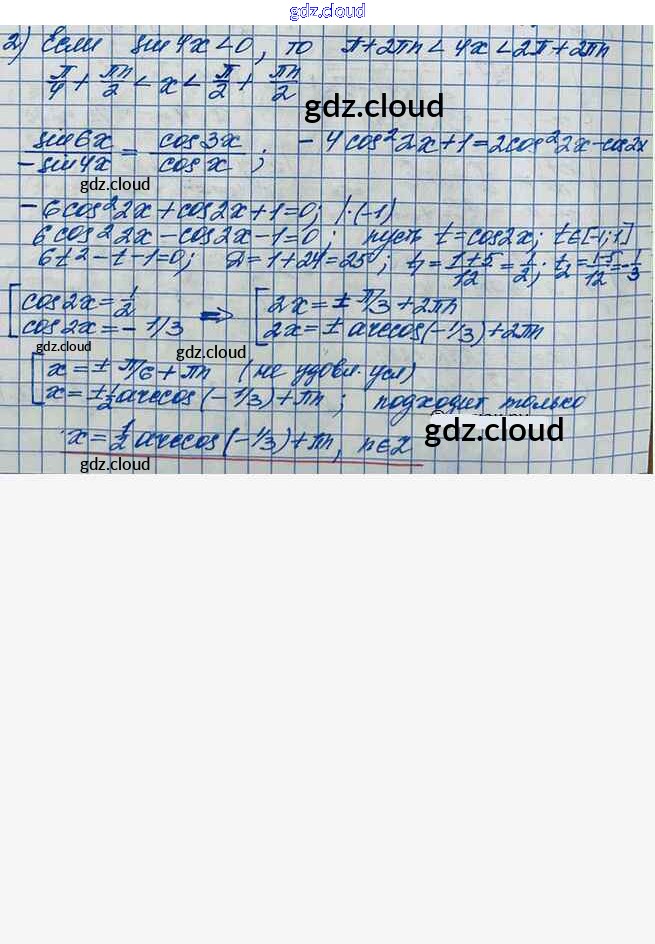 gdz.cloud
2) Если sin4x<0, то π+2πn<4x<2π+2πn
π/4 + πn/2 < x < π/2 + πn/2
gdz.cloud
sin6x/-sin4x = cos3x/cosx; -4cos²2x+1=2cos²2x-cos2x
gdz.cloud
-6cos²2x+cos2x+1=0; /·(-1)
6cos²2x-cos2x-1=0; пусть t=cos2x; t∈[-1;1]
6t²-t-1=0; D=1+24=25; t₁=(1+5)/12=1/2; t₂=(1-5)/12=-1/3
[cos2x=1/2 ⇒ [2x=±π/3+2πn
cos2x=-1/3 2x=±arccos(-1/3)+2πn
gdz.cloud gdz.cloud
[x=±π/6+πn (не удовл. усл)
x=±1/2arccos(-1/3)+πn; подходит только
gdz.cloud
x=1/2arccos(-1/3)+πn, n∈Z
gdz.cloud